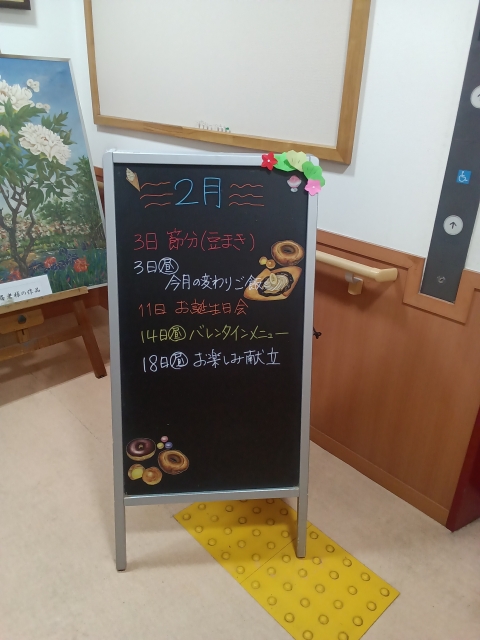 2月
3日 節分(豆まき)
3日昼
今月の変わりご飯
11日 お誕生日会
14日昼 バレンタインメニュー
18日昼 お楽しみ献立
様の作品